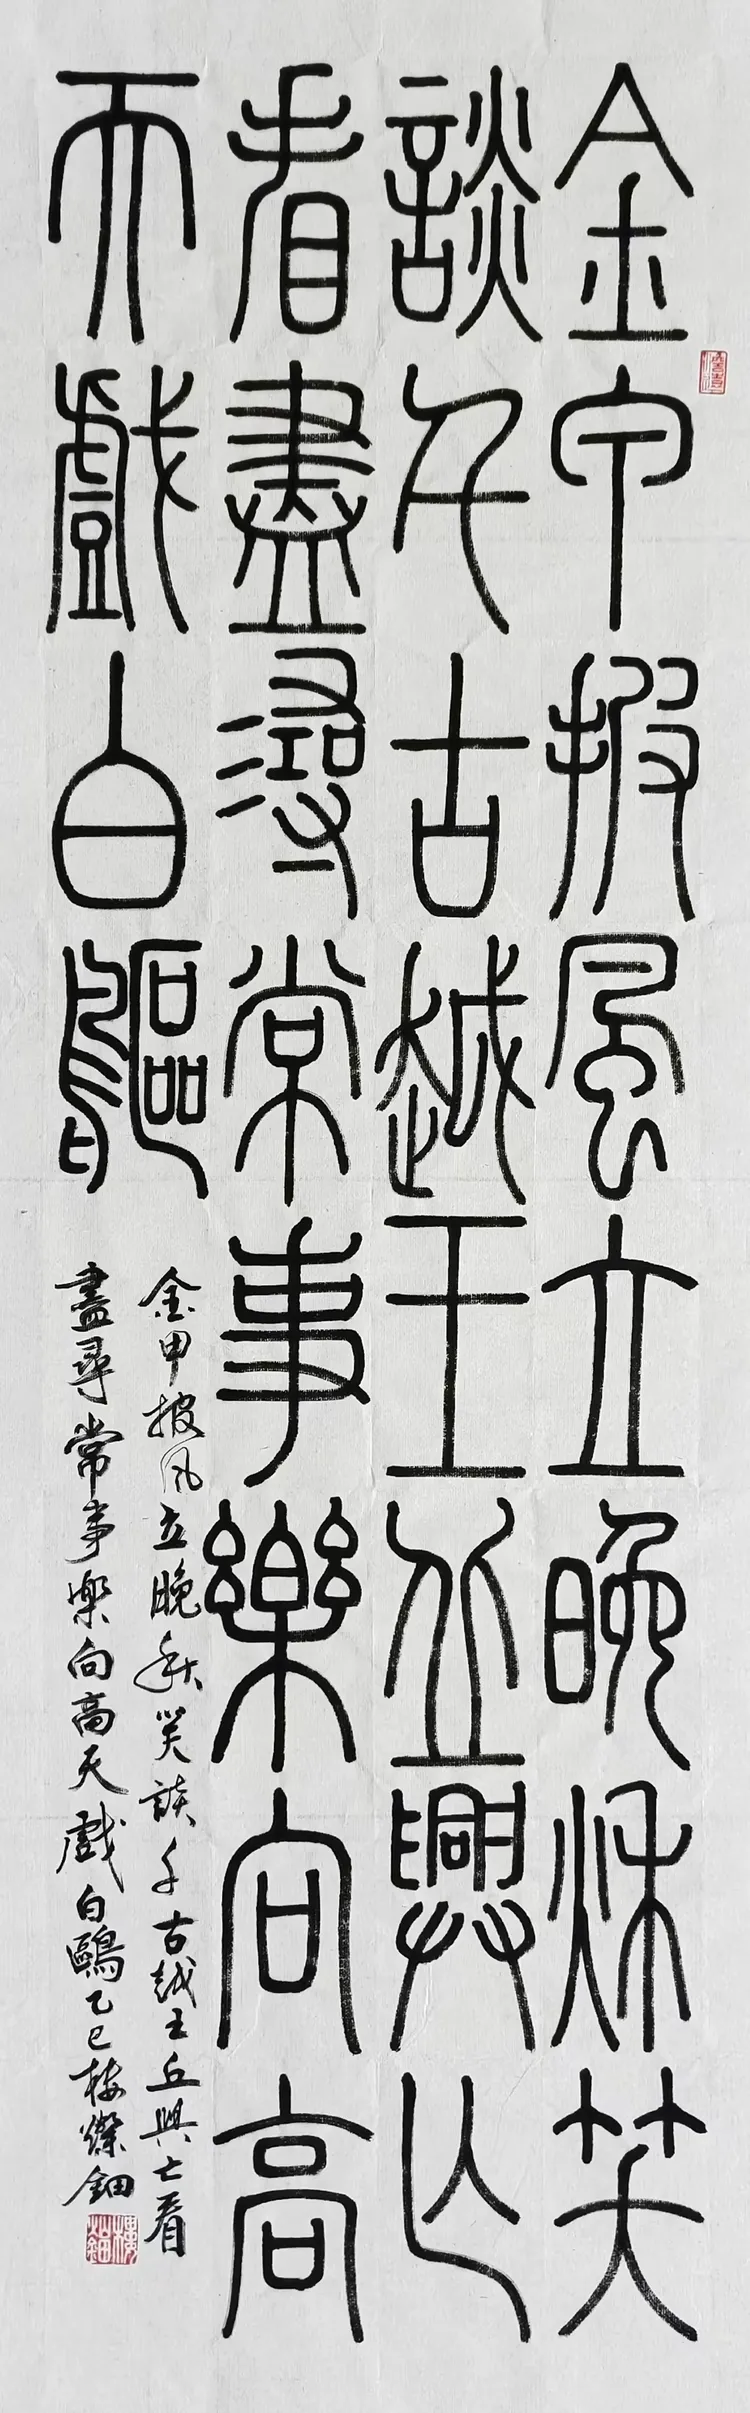 金甲披風立晚秋笑
談千古越王丘興亡
看盡尋常事樂向高
天戲白鷗
金甲披风立晚秋笑談千古越王丘興亡看
盡尋常事樂向高天戲白鷗乙巳楼燦鈿